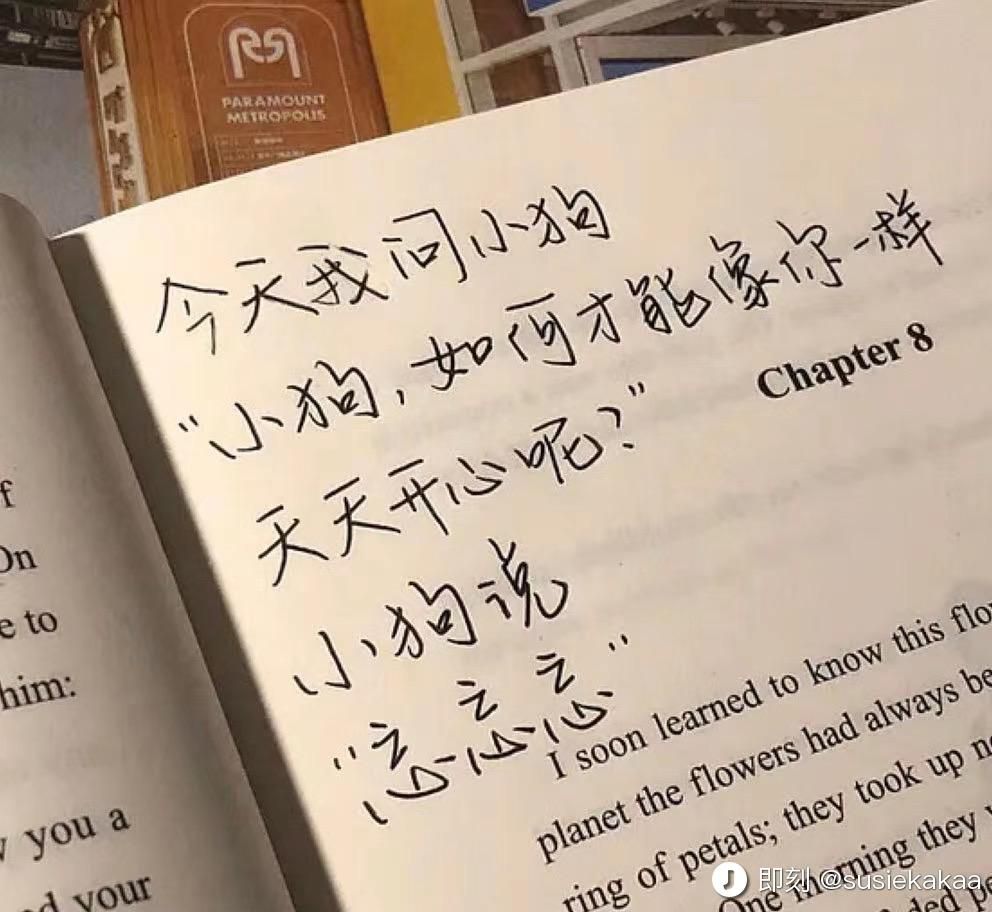 PARAMOUNT
METROPOLIS
今天我问小狗
“小狗，如何才能像你一样
天天开心呢？”
小狗说
“忘忘忘”
Chapter 8
f
On
e to
him:
you a
d your
I soon learned to know this flo
planet the flowers had always be
ring of petals; they took up n
One morning they
ded pe
即刻 @susiekakaa